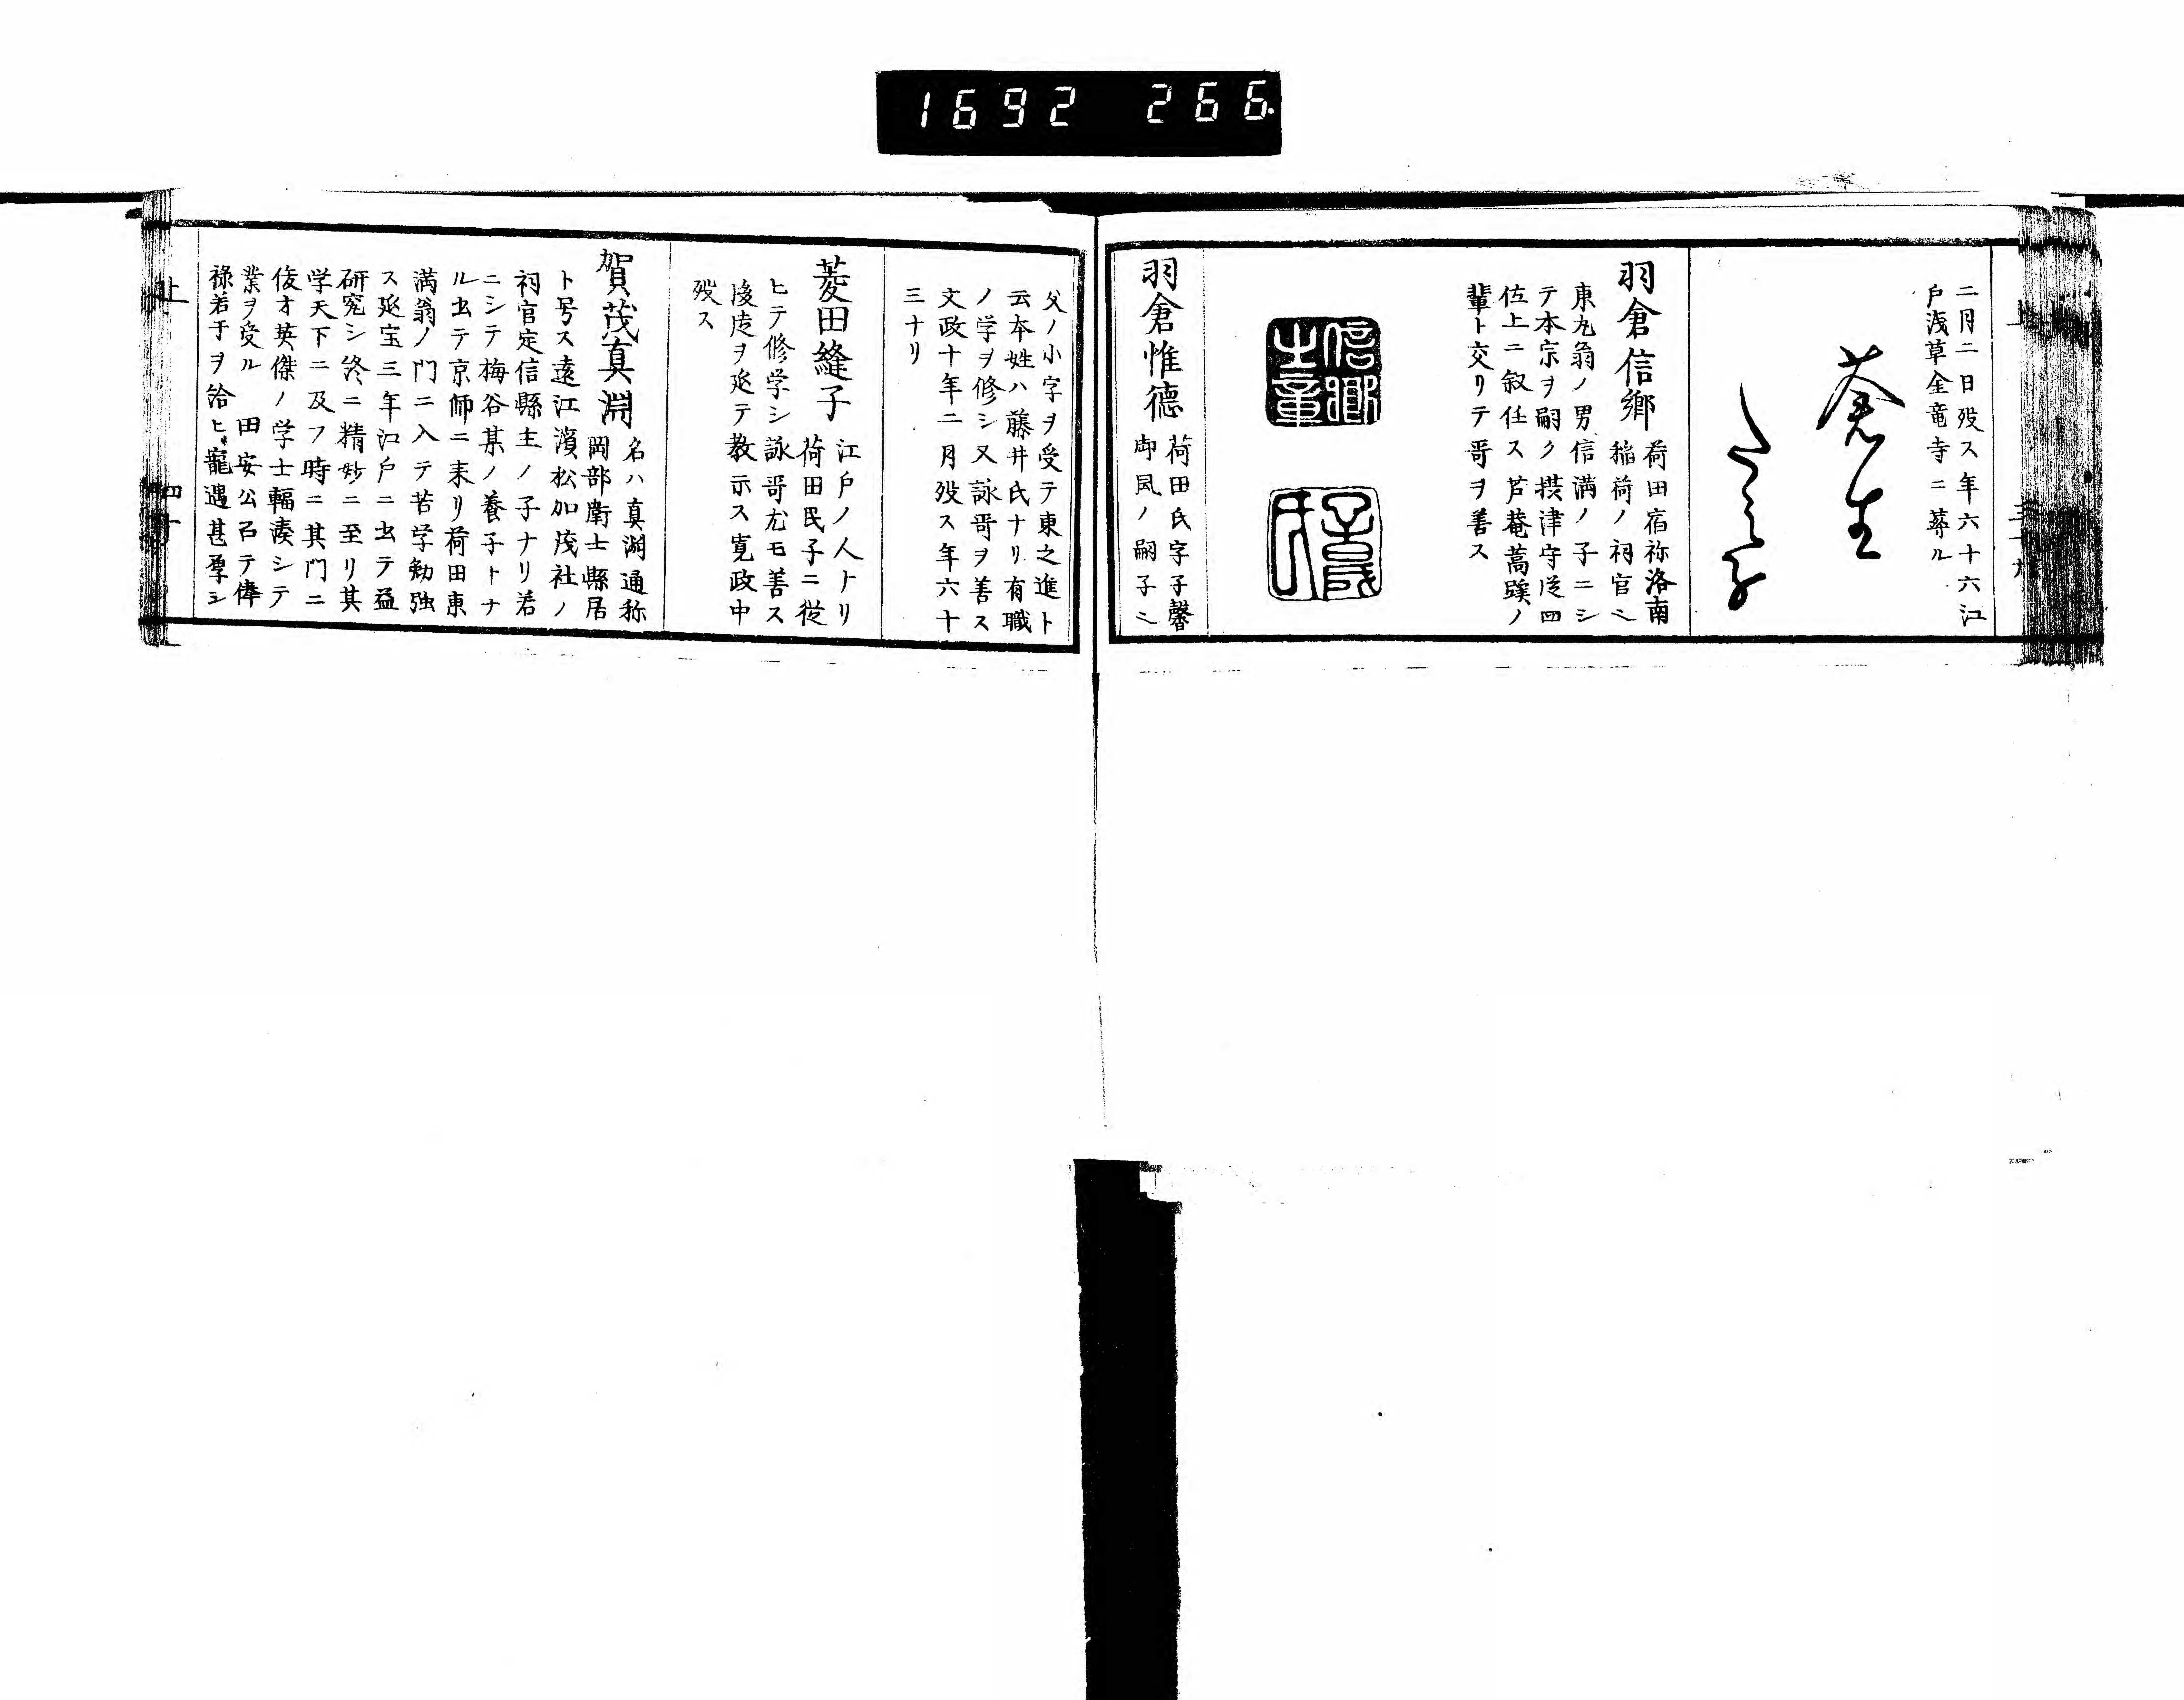 1692 266
二月二日歿ス年六十六江
戸浅草金竜寺ニ葬ル
蒼生
たみ子
羽倉信郷
荷田宿祢洛南
稲荷ノ祠官ニ
東丸翁ノ男信満ノ子ニシ
テ本宗ヲ嗣ク摂津守従四
位上ニ叙任ス芦菴蒿蹊ノ
輩ト交リテ哥ヲ善ス
信郷之章
羽倉惟德
荷田氏字子馨
御風ノ嗣子ニ
父ノ小字ヲ受テ東之進ト
云本姓ハ藤井氏ナリ有職
ノ学ヲ修シ又詠哥ヲ善ス
文政十年二月歿ス年六十
三ナリ
菱田縫子
江戸ノ人ナリ
荷田民子ニ従
ヒテ修学シ詠哥尤モ善ス
後陸ヲ延テ教示ス寛政中
歿ス
賀茂真淵
名ハ真淵通称
岡部衛士縣居
ト号ス遠江濱松加茂社ノ
祠官定信縣主ノ子ナリ若
ニシテ梅谷某ノ養子トナ
ル出テ京師ニ来リ荷田東
満翁ノ門ニ入テ苦学勉強
ス延宝三年江戸ニ出テ益
研究シ終ニ精妙ニ至リ其
学天下ニ及フ時ニ其門ニ
俊才英傑ノ学士輻湊シテ
業ヲ受ル 田安公召テ俸
禄若干ヲ給ヒ寵遇甚厚シ
上